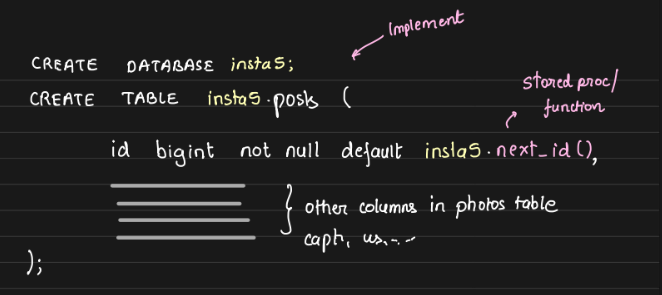 Implement
CREATE DATABASE insta5;
CREATE TABLE insta5.posts (
stored proc/
function
id bigint not null default insta5.next_id(),
other columns in photos table
capt, us...
);